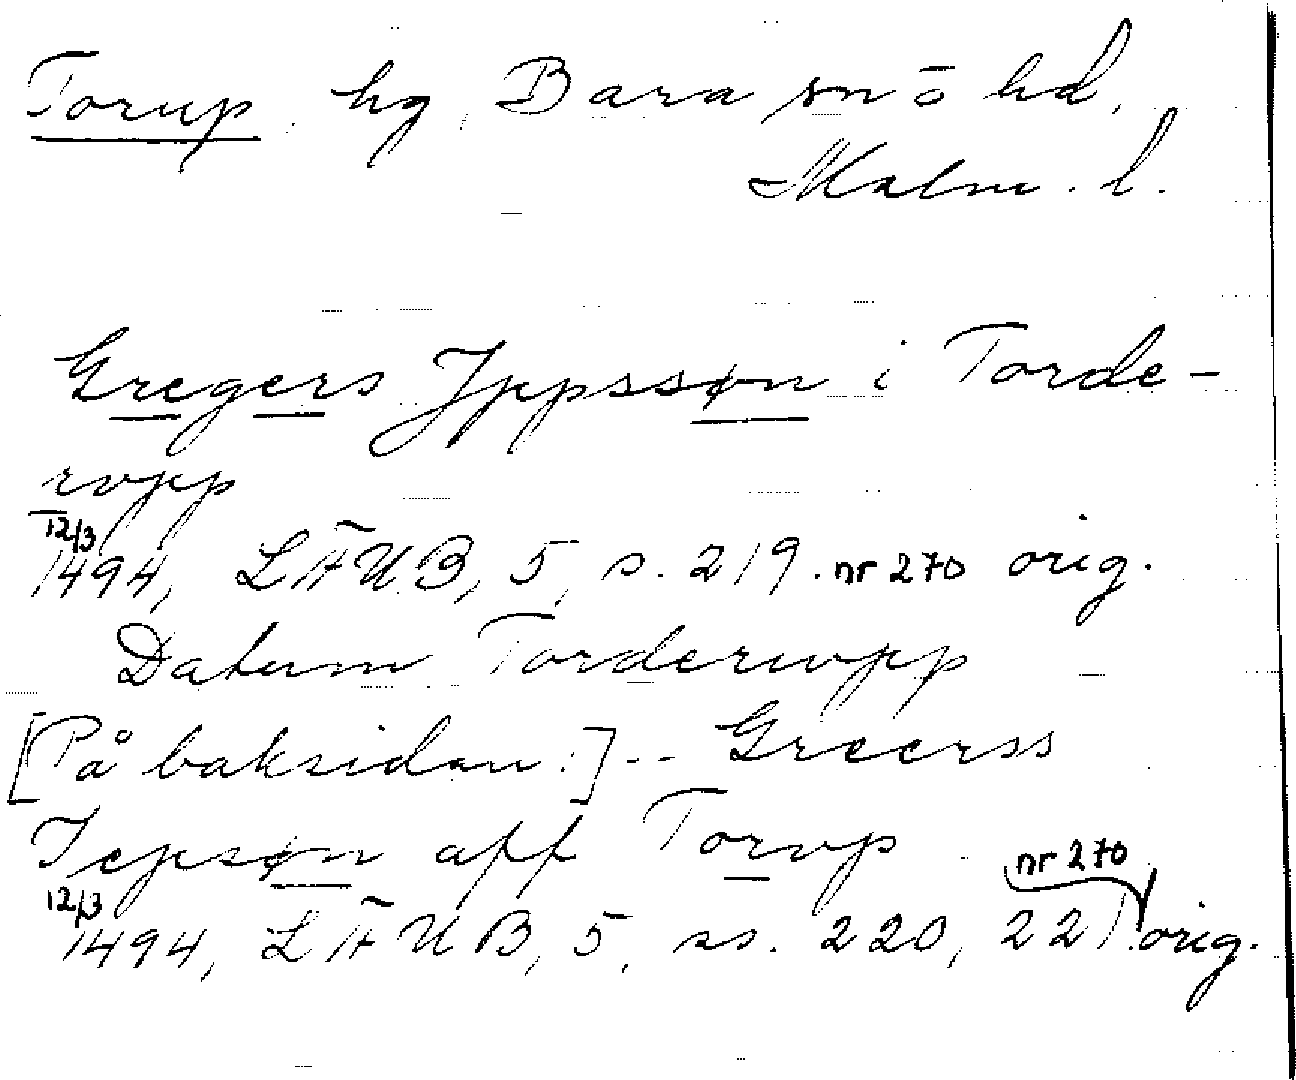 Torup, hg, Bara sn ō hd,
Malm. l.
Gregers Jppssøn i Torde-
rvpp
12/3
1494, LÄUB, 5, s. 219. nr 270 orig.
Datum Torderwpp
[På baksidan:] -- Greerss
Jepsøn aff Torvp
nr 270
12/3
1494, LÄUB, 5, ss. 220, 221. orig.